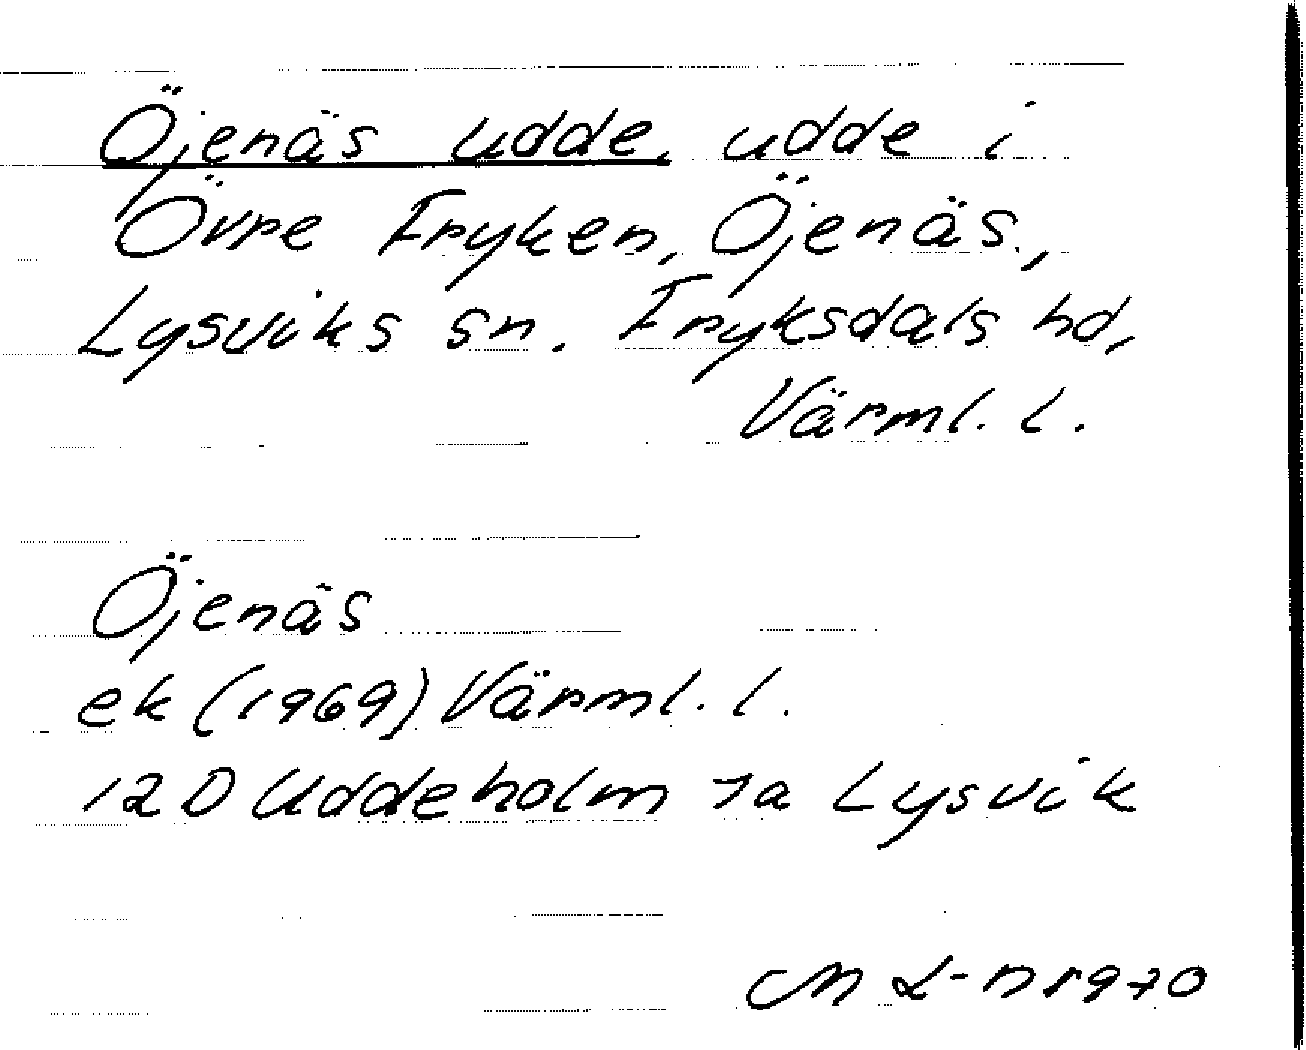 Öjenäs udde, udde i
Övre Fryken, Öjenäs,
Lysviks sn. Fryksdals hd,
Värml. l.
Öjenäs
ek (1969) Värml. l.
12D Uddeholm 7a Lysvik
M L-n 1970